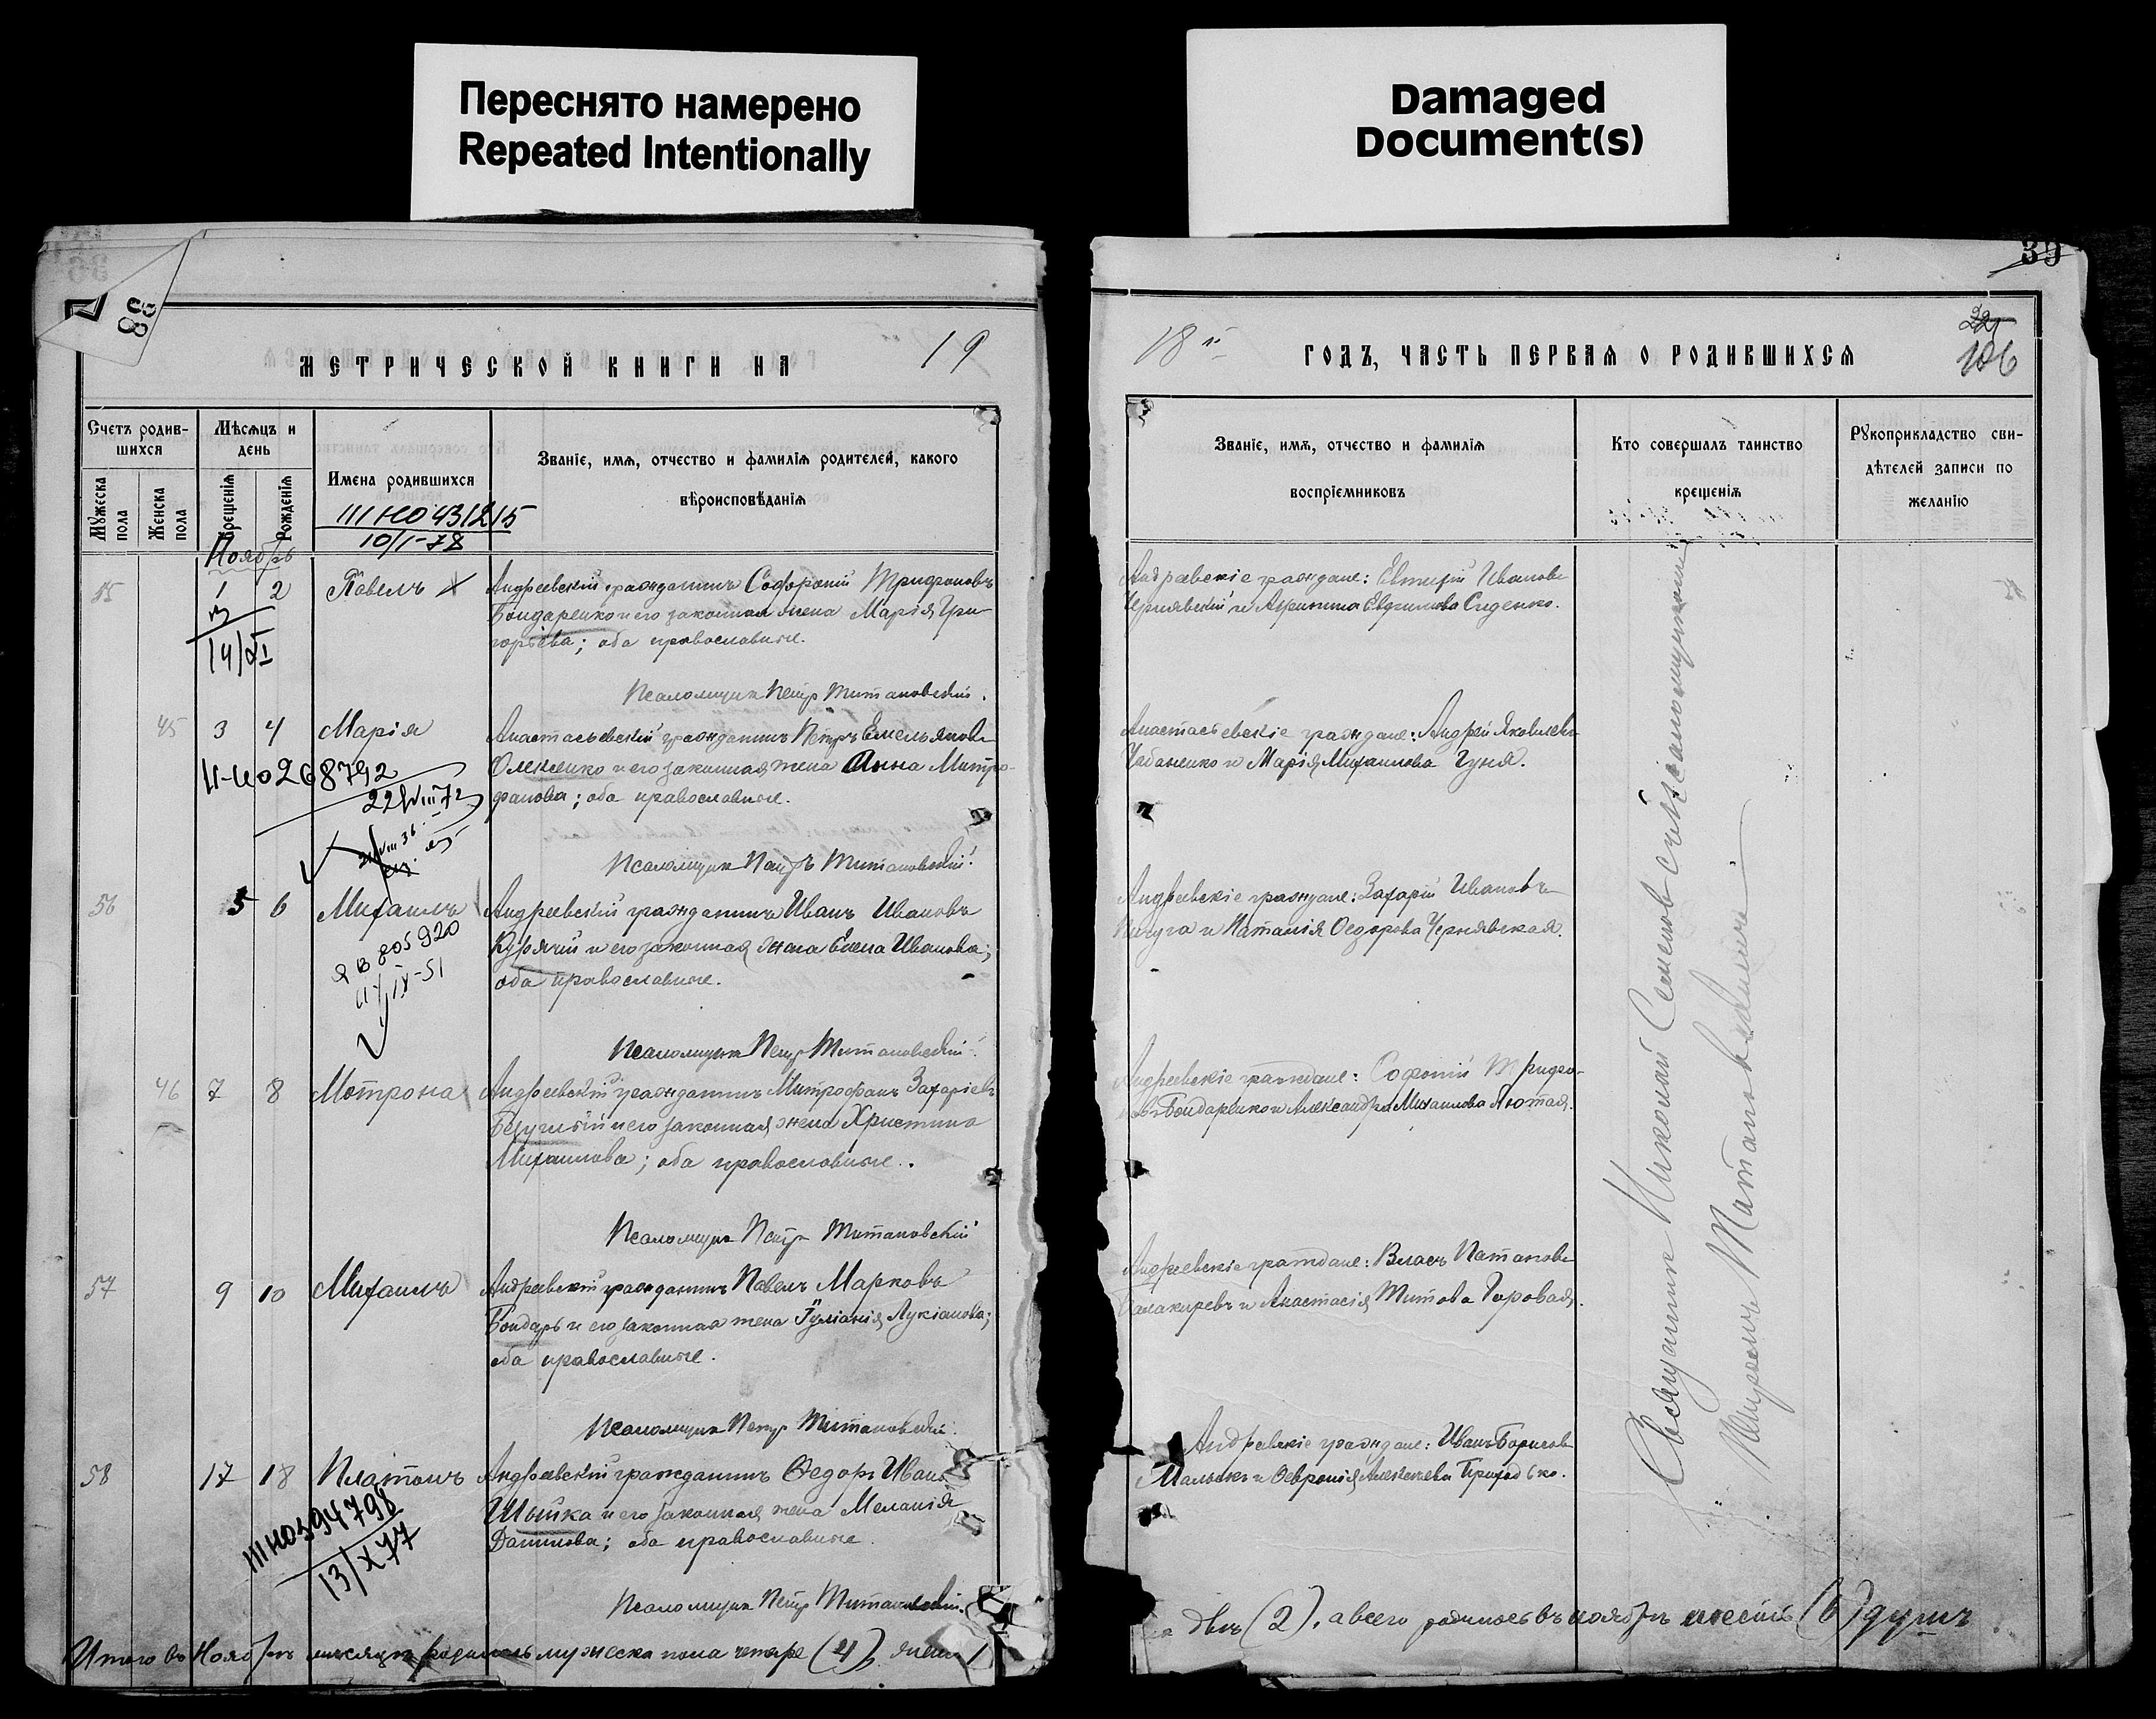 Переснято намерено
Repeated Intentionally
Damaged
Document(s)
38
МЕТРИЧЕСКОЙ КНИГИ НА
19
Счетъ родив-
шихся
Мѣсяцъ и
день
Имена родившихся
Званіе, имя, отчество и фамилія родителей, какого
вѣроисповѣданія
Мужеска
пола
Женска
пола
Крещенія
Рожденія
III НО 431215
10/I-78
Ноябрь
55 1 2 Павелъ Андреевскій гражданинъ Софроній Трифоновъ
Бондаренко и его законная жена Марія Гри-
горьева; оба православные.
14/XI
Псаломщикъ Петр Титановскій.
45 3 4 Марія Анастасьевскій гражданинъ Петръ Емельяновъ
Олененко и его законная жена Анна Митро-
фанова; оба православные.
II-НО 268792
22/VIII 72
Псаломщикъ Петръ Титановскій.
56 5 6 Михаилъ Андреевскій гражданинъ Иванъ Ивановъ
Курячій и его законная жена Елена Иванова;
оба православные.
ЯВ 805920
IX-51
Псаломщикъ Петр Титановскій.
46 7 8 Мотрона Андреевскій гражданинъ Митрофанъ Захаріевъ
и его законная жена Христина
Михаилова; оба православные.
Псаломщикъ Петр Титановскій
57 9 10 Михаилъ Андреевскій гражданинъ Павелъ Марковъ
Бондарь и его законная жена Іуліанія Лукіанова;
оба православные.
Псаломщикъ Петр Титановскій.
58 17 18 Платонъ Андреевскій гражданинъ Ѳедоръ Иванов
Шыйка и его законная жена Меланія
Данилова; оба православные.
III НО 394798
13/X 77
Псаломщикъ Петр Титановскій.
Итого въ Ноябрѣ мѣсяцѣ родилось мужеска пола четыре (4), женск
39
18
ГОДЪ, ЧАСТЬ ПЕРВАЯ О РОДИВШИХСЯ
106
Званіе, имя, отчество и фамилія
воспріемниковъ
Кто совершалъ таинство
крещенія
Рукоприкладство сви-
дѣтелей записи по
желанію
Андреевскіе граждане: Евтихій Ивановъ
Чернявскій и Акулина Сиденко.
Анастасьевскіе граждане: Андрей Яковлевъ
Чабаненко и Марія Михаилова Гуня.
Андреевскіе граждане: Захарій Ивановъ
Пичуга и Наталія Ѳедорова Чернявская.
Андреевскіе граждане: Софроній Трифо-
новъ Бондаренко и Александра Михаилова Лютая.
Андреевскіе граждане: Власъ Потаповъ
Балакиревъ и Анастасія Титова Боровая.
Андреевскіе граждане: Иванъ Борисовъ
и Ѳевронія Алексѣева Приходько.
Священникъ Николай Семеновъ съ псаломщикомъ
Петромъ Титановскимъ
двѣ (2), а всего родилось въ ноябрѣ шесть (6) душъ